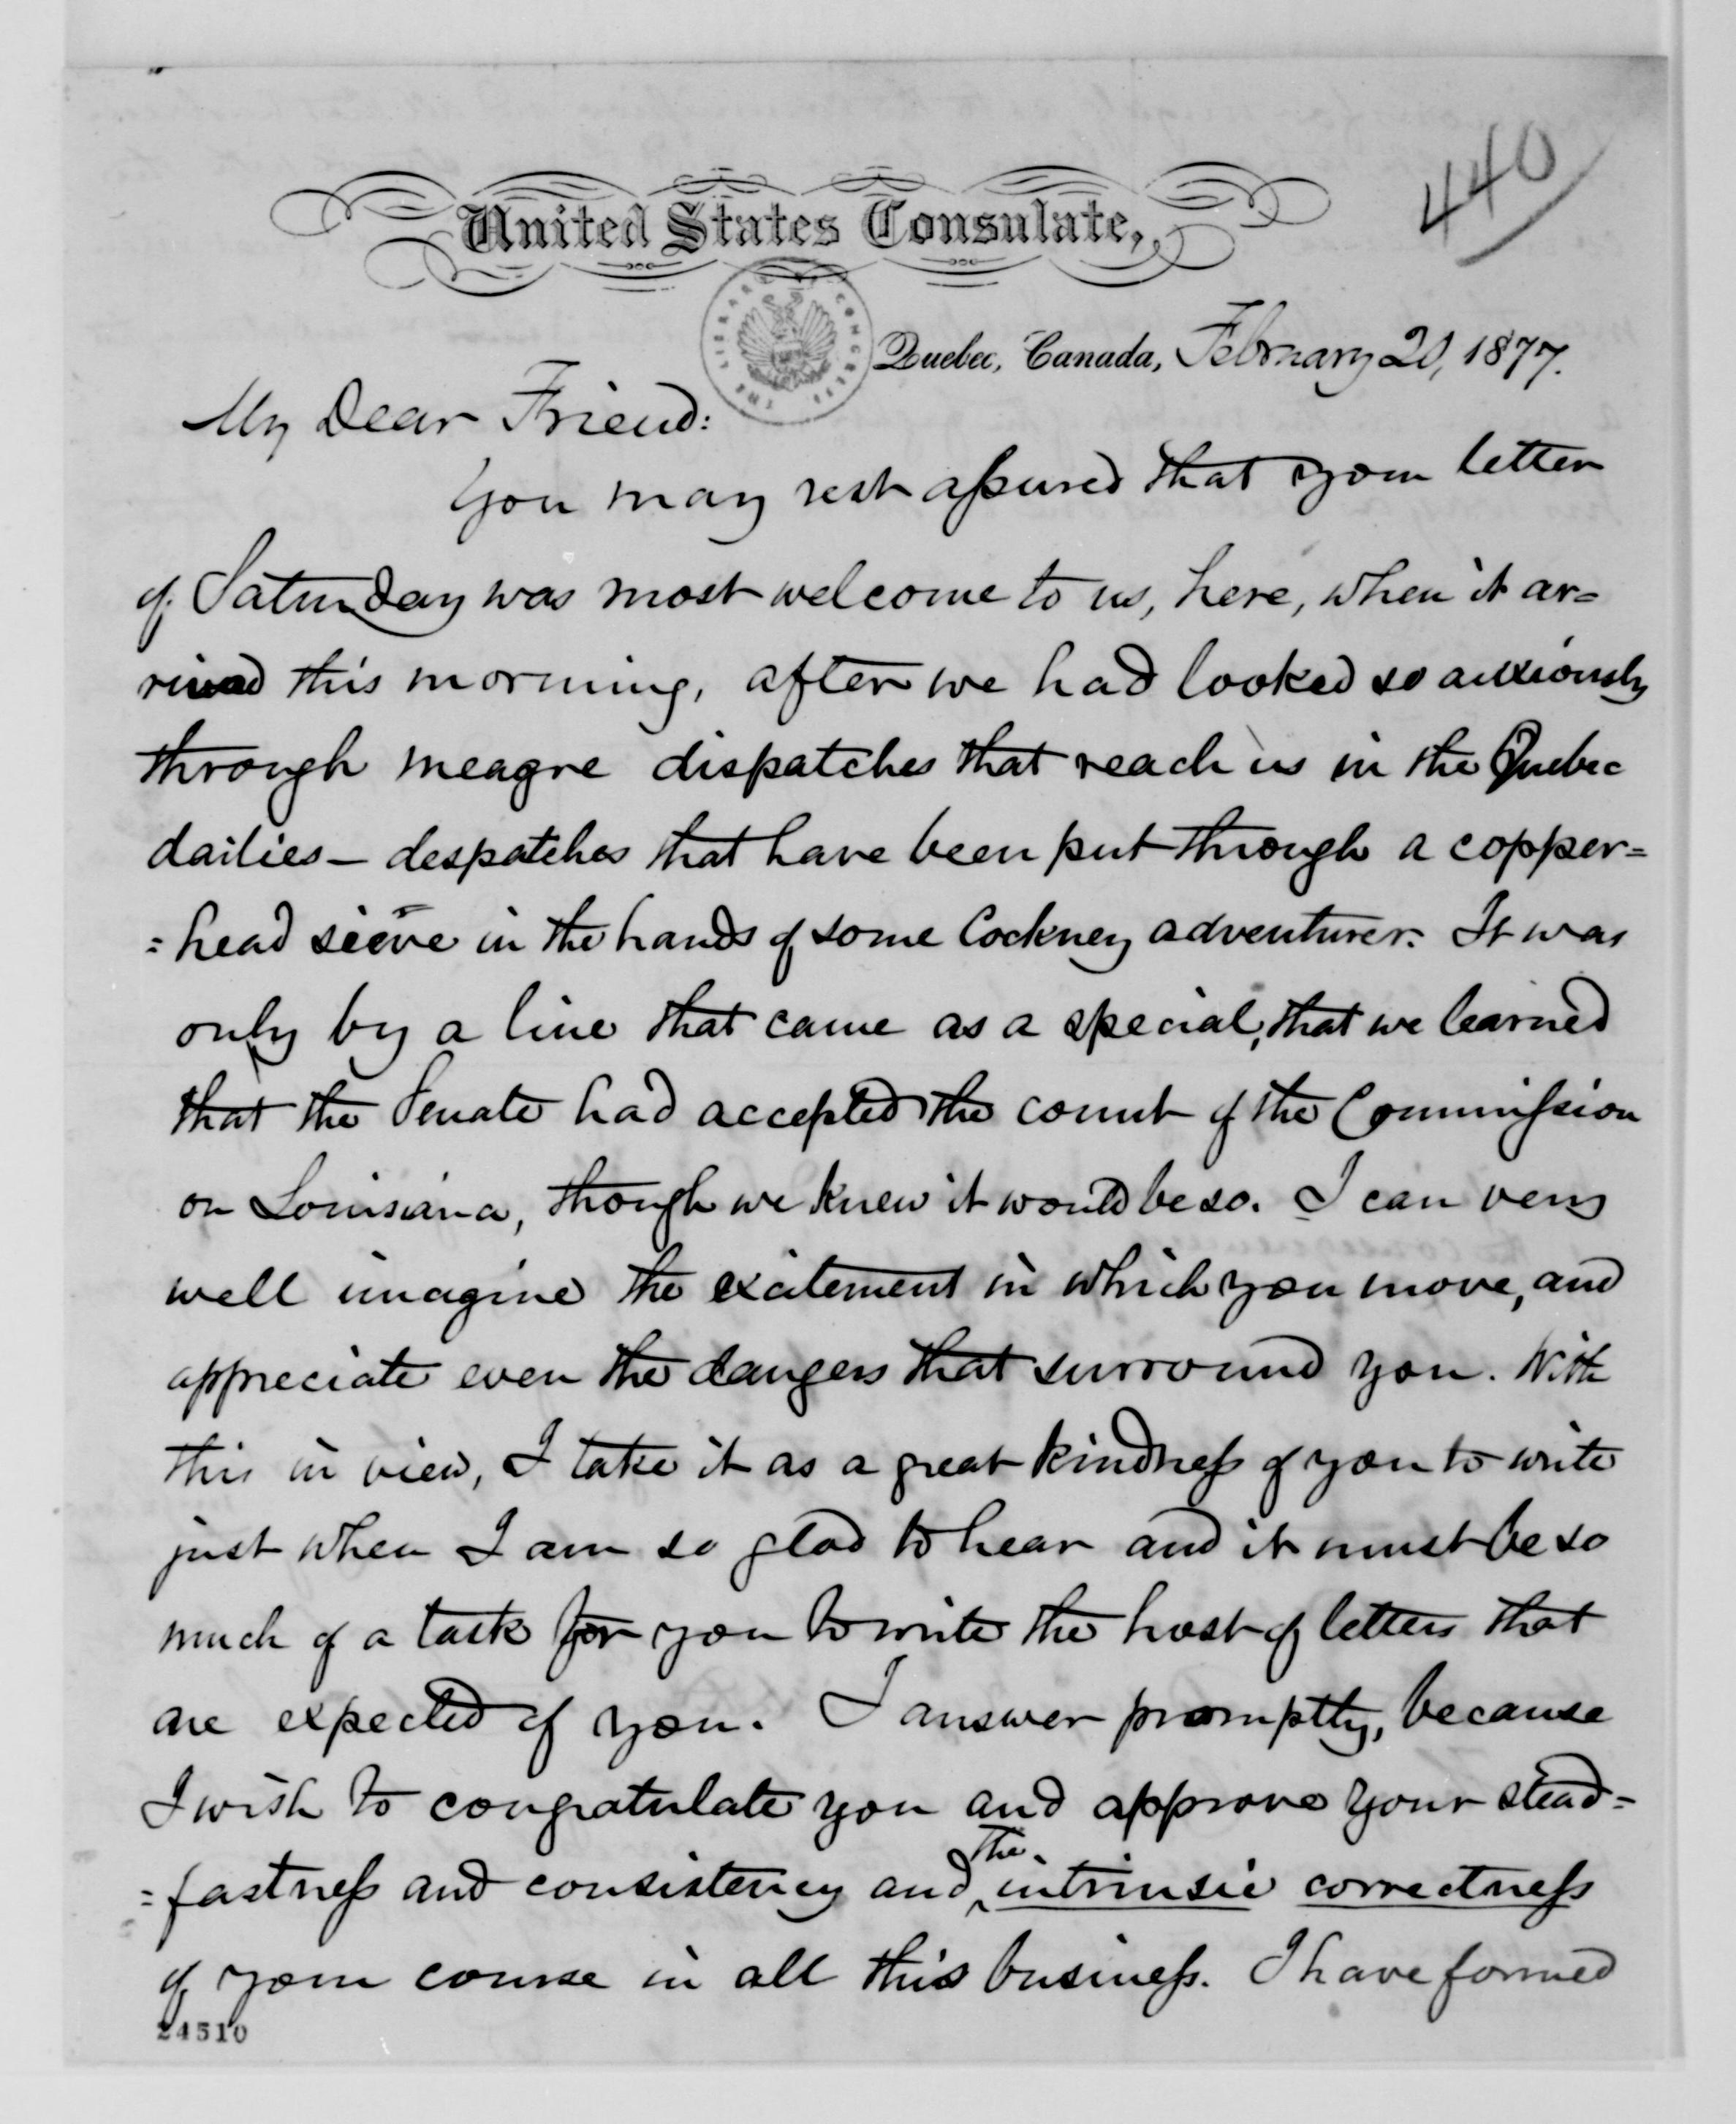 440
United States Consulate,
THE LIBRARY OF CONGRESS
Quebec, Canada, February 20, 1877.
My Dear Friend:
You may rest assured that your letter
of Saturday was most welcome to us, here, when it ar=
rived this morning, after we had looked so anxiously
through meagre dispatches that reach us in the Quebec
dailies – despatches that have been put through a copper=
=head sieve in the hands of some Cockney adventurer. It was
only by a line that came as a special, that we learned
that the Senate had accepted the count of the Commission
on Louisiana, though we knew it would be so. I can very
well imagine the excitement in which you move, and
appreciate even the dangers that surround you. With
this in view, I take it as a great kindness of you to write
just when I am so glad to hear and it must be so
much of a task for you to write the host of letters that
are expected of you. I answer promptly, because
I wish to congratulate you and approve your stead=
=fastness and consistency and the intrinsic correctness
of your course in all this business. I have formed
24510